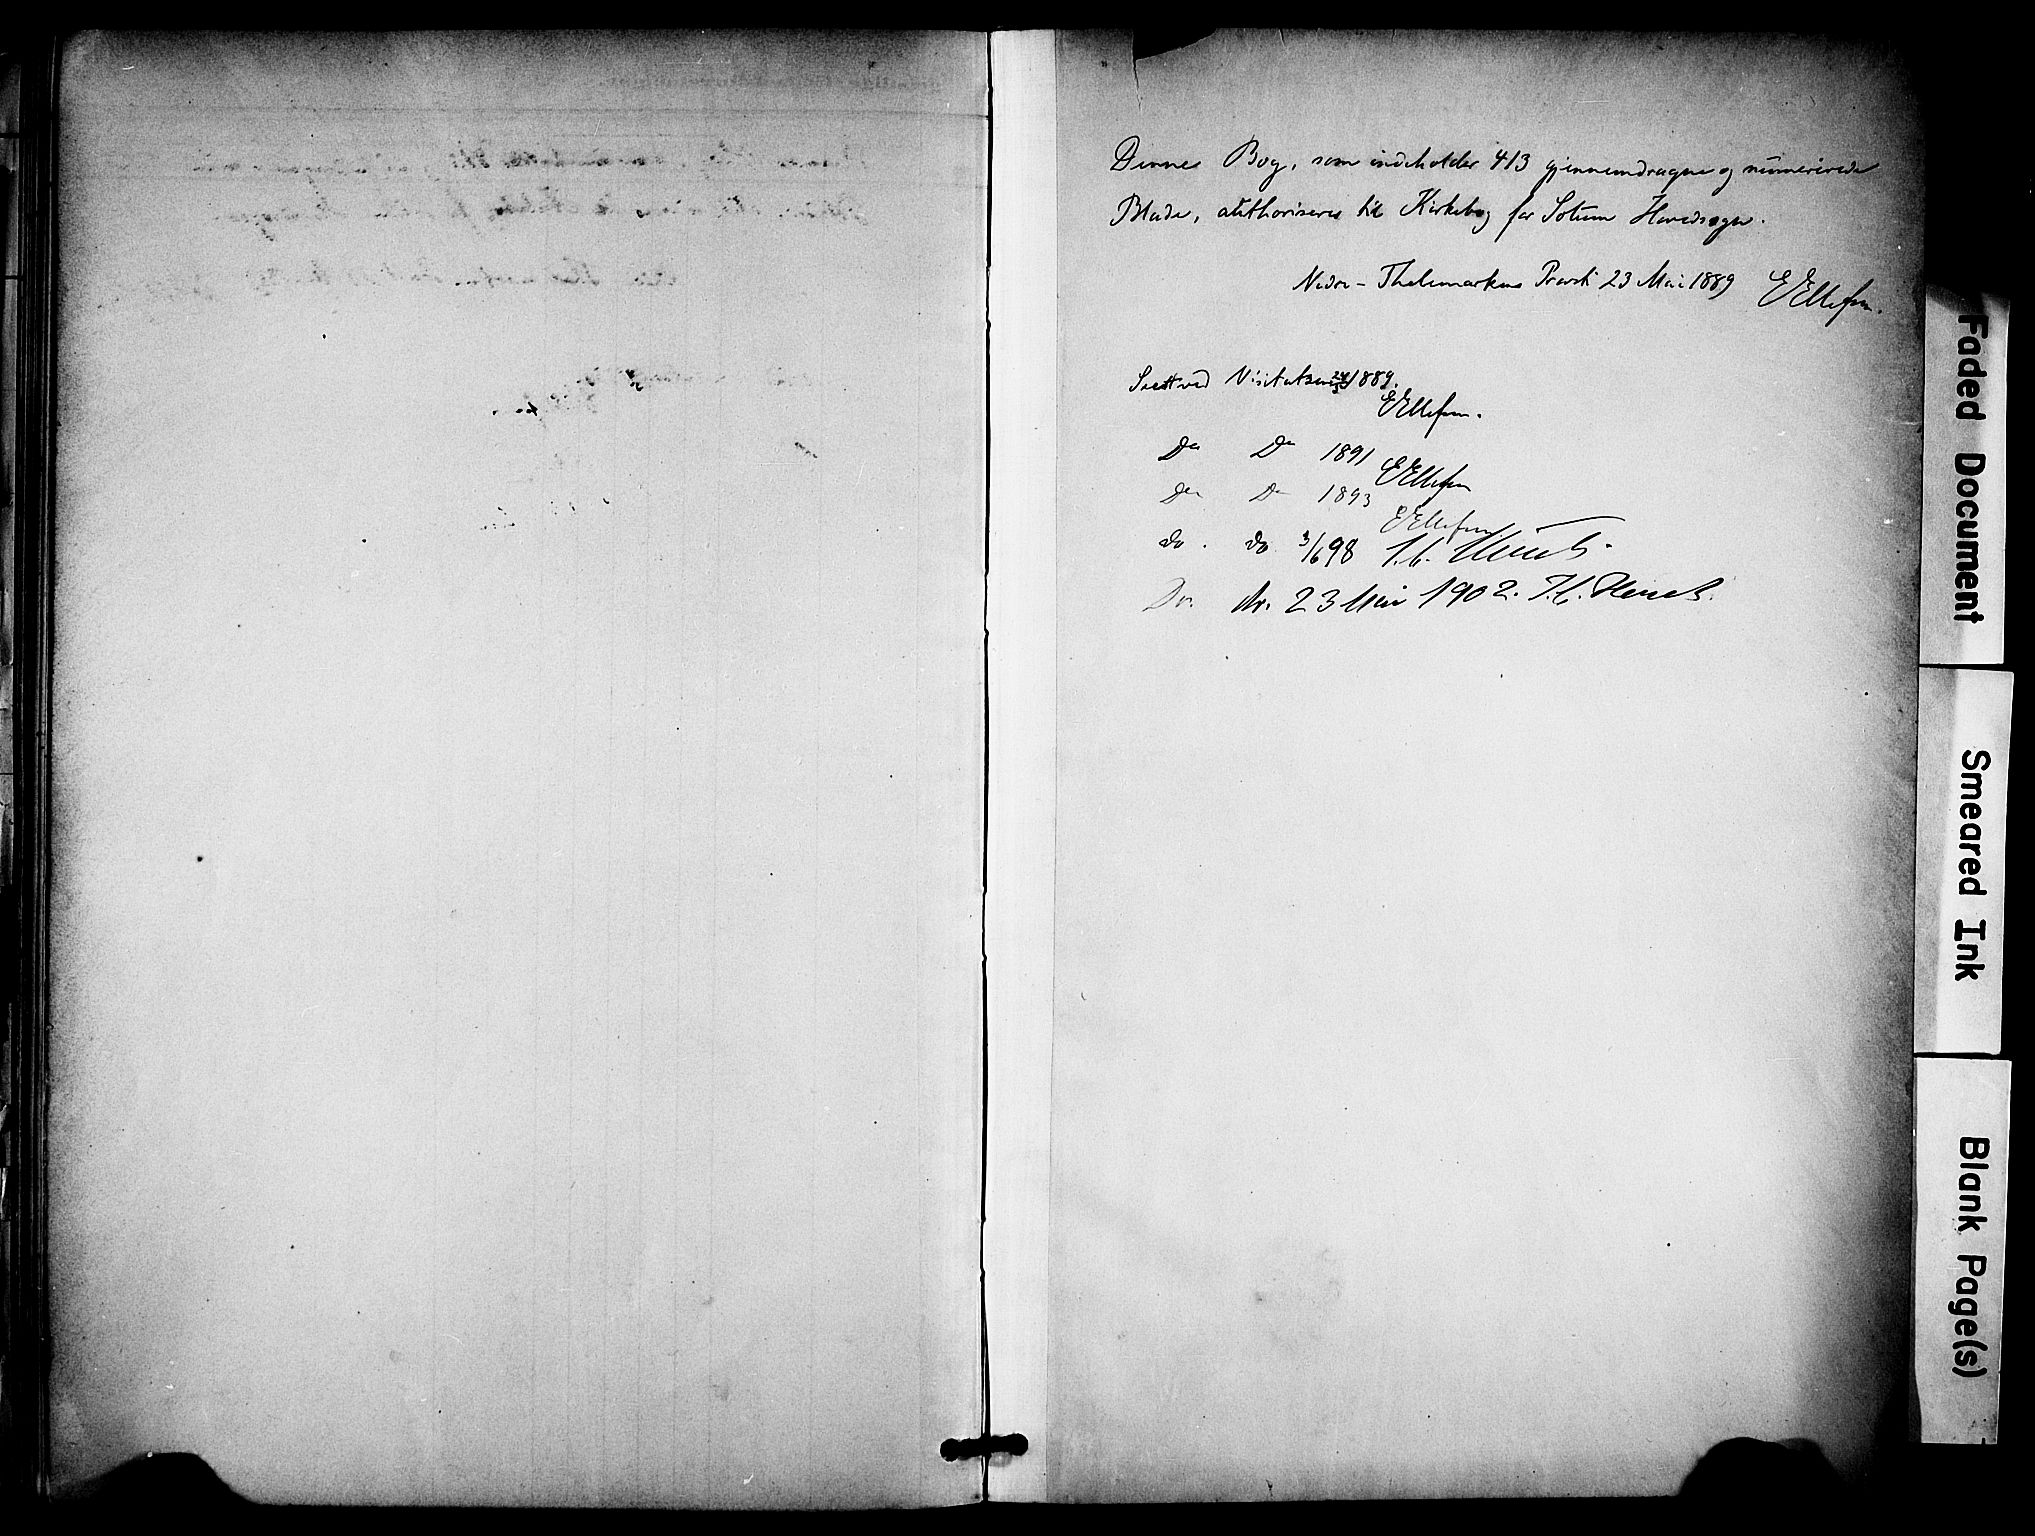 Denne Bog, som indeholder 413 gjennemdragne og numererede
Blade, authoriseres til Kirkebog for Solum Hovedsogn.
Nedre-Thelemarkens Provsti 23 Mai 1889 E Ellefsen.
Seet ved Visitatsen 24/5 1889.
E Ellefsen.
Do Do 1891 E Ellefsen
Do Do 1893
E Ellefsen
do. do 3/6 98 J.C. Heuch.
Do. do. 23 Mai 1902. J.C. Heuch.
Faded Document
Smeared Ink
Blank Page(s)